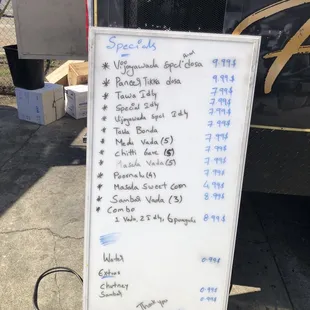 Specials
* Veg Vijayawada Spcl dosa 9.99$
* Paneer Tikka dosa 9.99$
* Tawa Idly 7.99$
* Special Idly 7.99$
* Vijayawada spcl Idly 8.99$
* Tawa Bonda 7.99$
* Medu Vada (5) 7.99$
* Chitti Gare (5) 7.99$
* Masala Vada (5) 7.99$
* Poornalu (4) 7.99$
* Masala Sweet corn 4.99$
* Sambar Vada (3) 8.99$
* Combo
1 Vada, 2 Idly, 6 punugulu 8.99$
Water 0.99$
Extras
Chutney 0.99$
Sambar 0.99$
Thank you